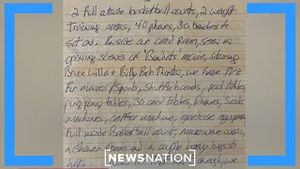 2 full outside basketball courts, 2 weight
training areas, 40 phones, 30 benches to
sit on. Inside an card room, seen in
opening scenes of "Bandits" movie, starring
Bruce Willis + Billy Bob Thorton, we have
for movies / sports, shuffle boards, pool tables
ping pong tables, 30 card tables,
machines, coffee machine, exercise equipment
Full inside Basketball court, microwave ovens,
a shower room and a couple heavy bags to
NEWSNATION